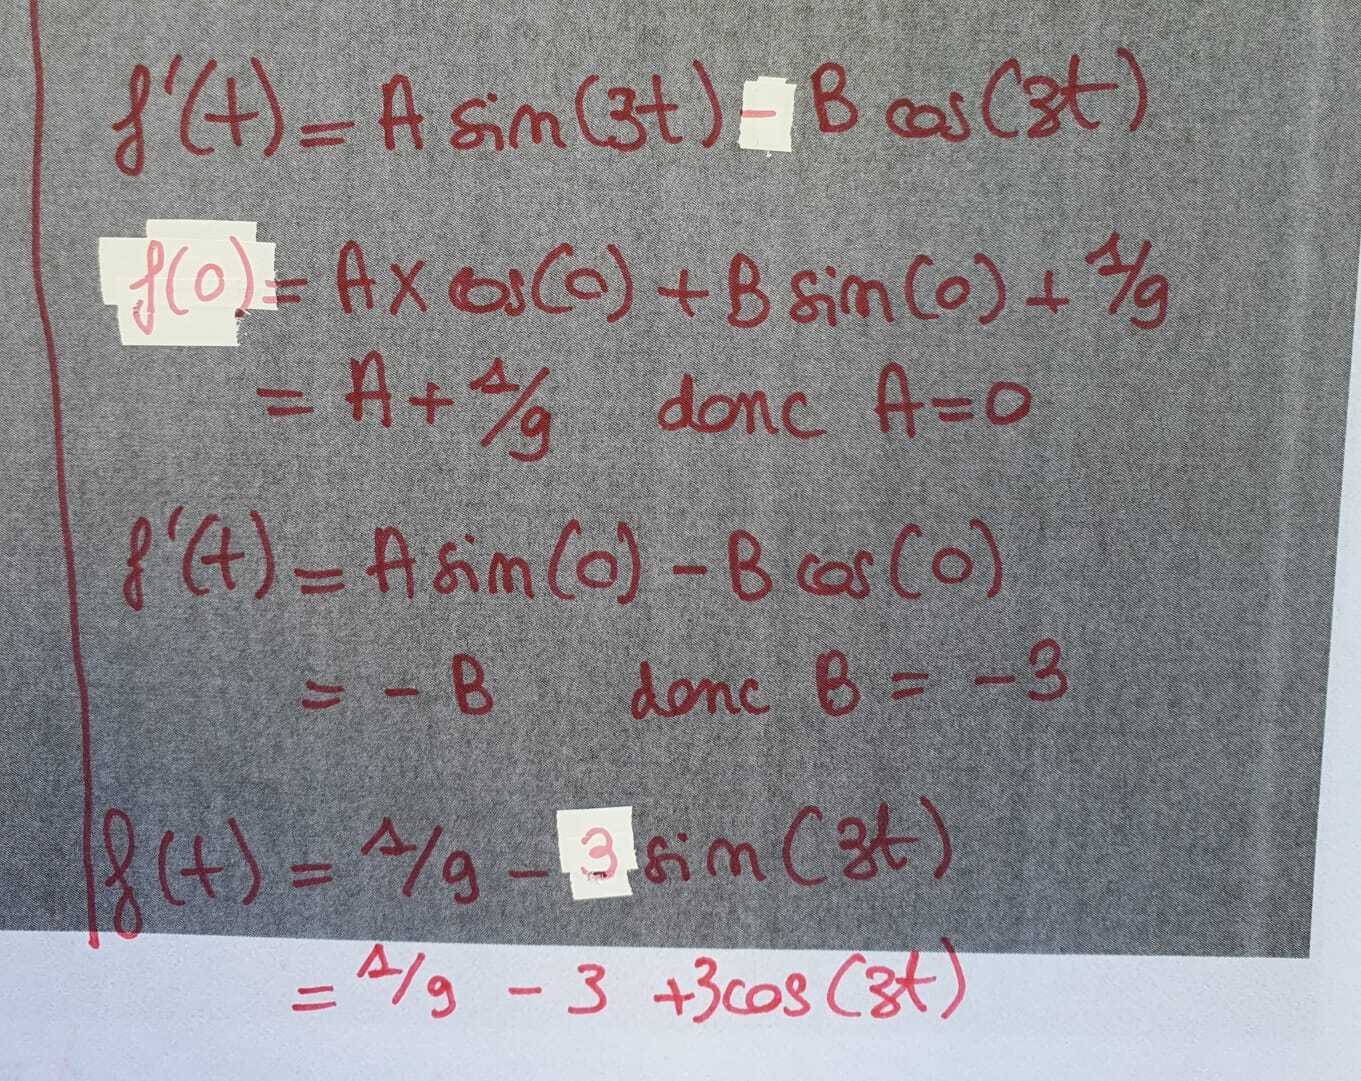 f'(t) = A sin(3t) - B cos(3t)
f(0) = A x cos(0) + B sin(0) + 1/9
= A + 1/9 donc A = 0
f'(t) = A sin(0) - B cos(0)
= - B donc B = -3
f(t) = 1/9 - 3 sin(3t)
= 1/9 - 3 + 3cos(3t)